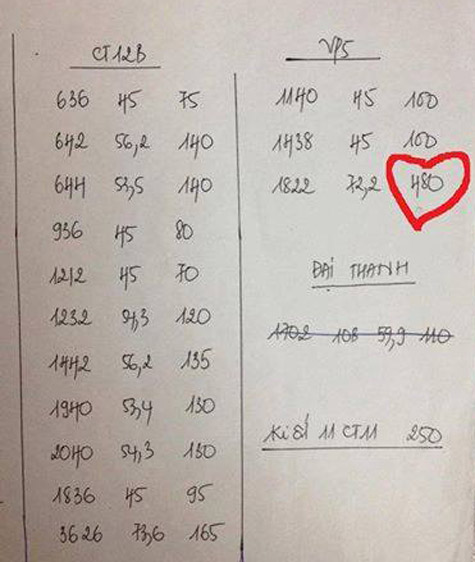 CT12B
636 45 75
642 56,2 140
644 53,5 140
936 45 80
1212 45 70
1232 54,3 120
1442 56,2 135
1940 53,4 130
2040 54,3 130
1836 45 95
3626 73,6 165
VP5
1140 45 100
1438 45 100
1822 72,2 480
ĐẠI THANH
1702 108 59,9 110
Ki ốt 11 CT11 250